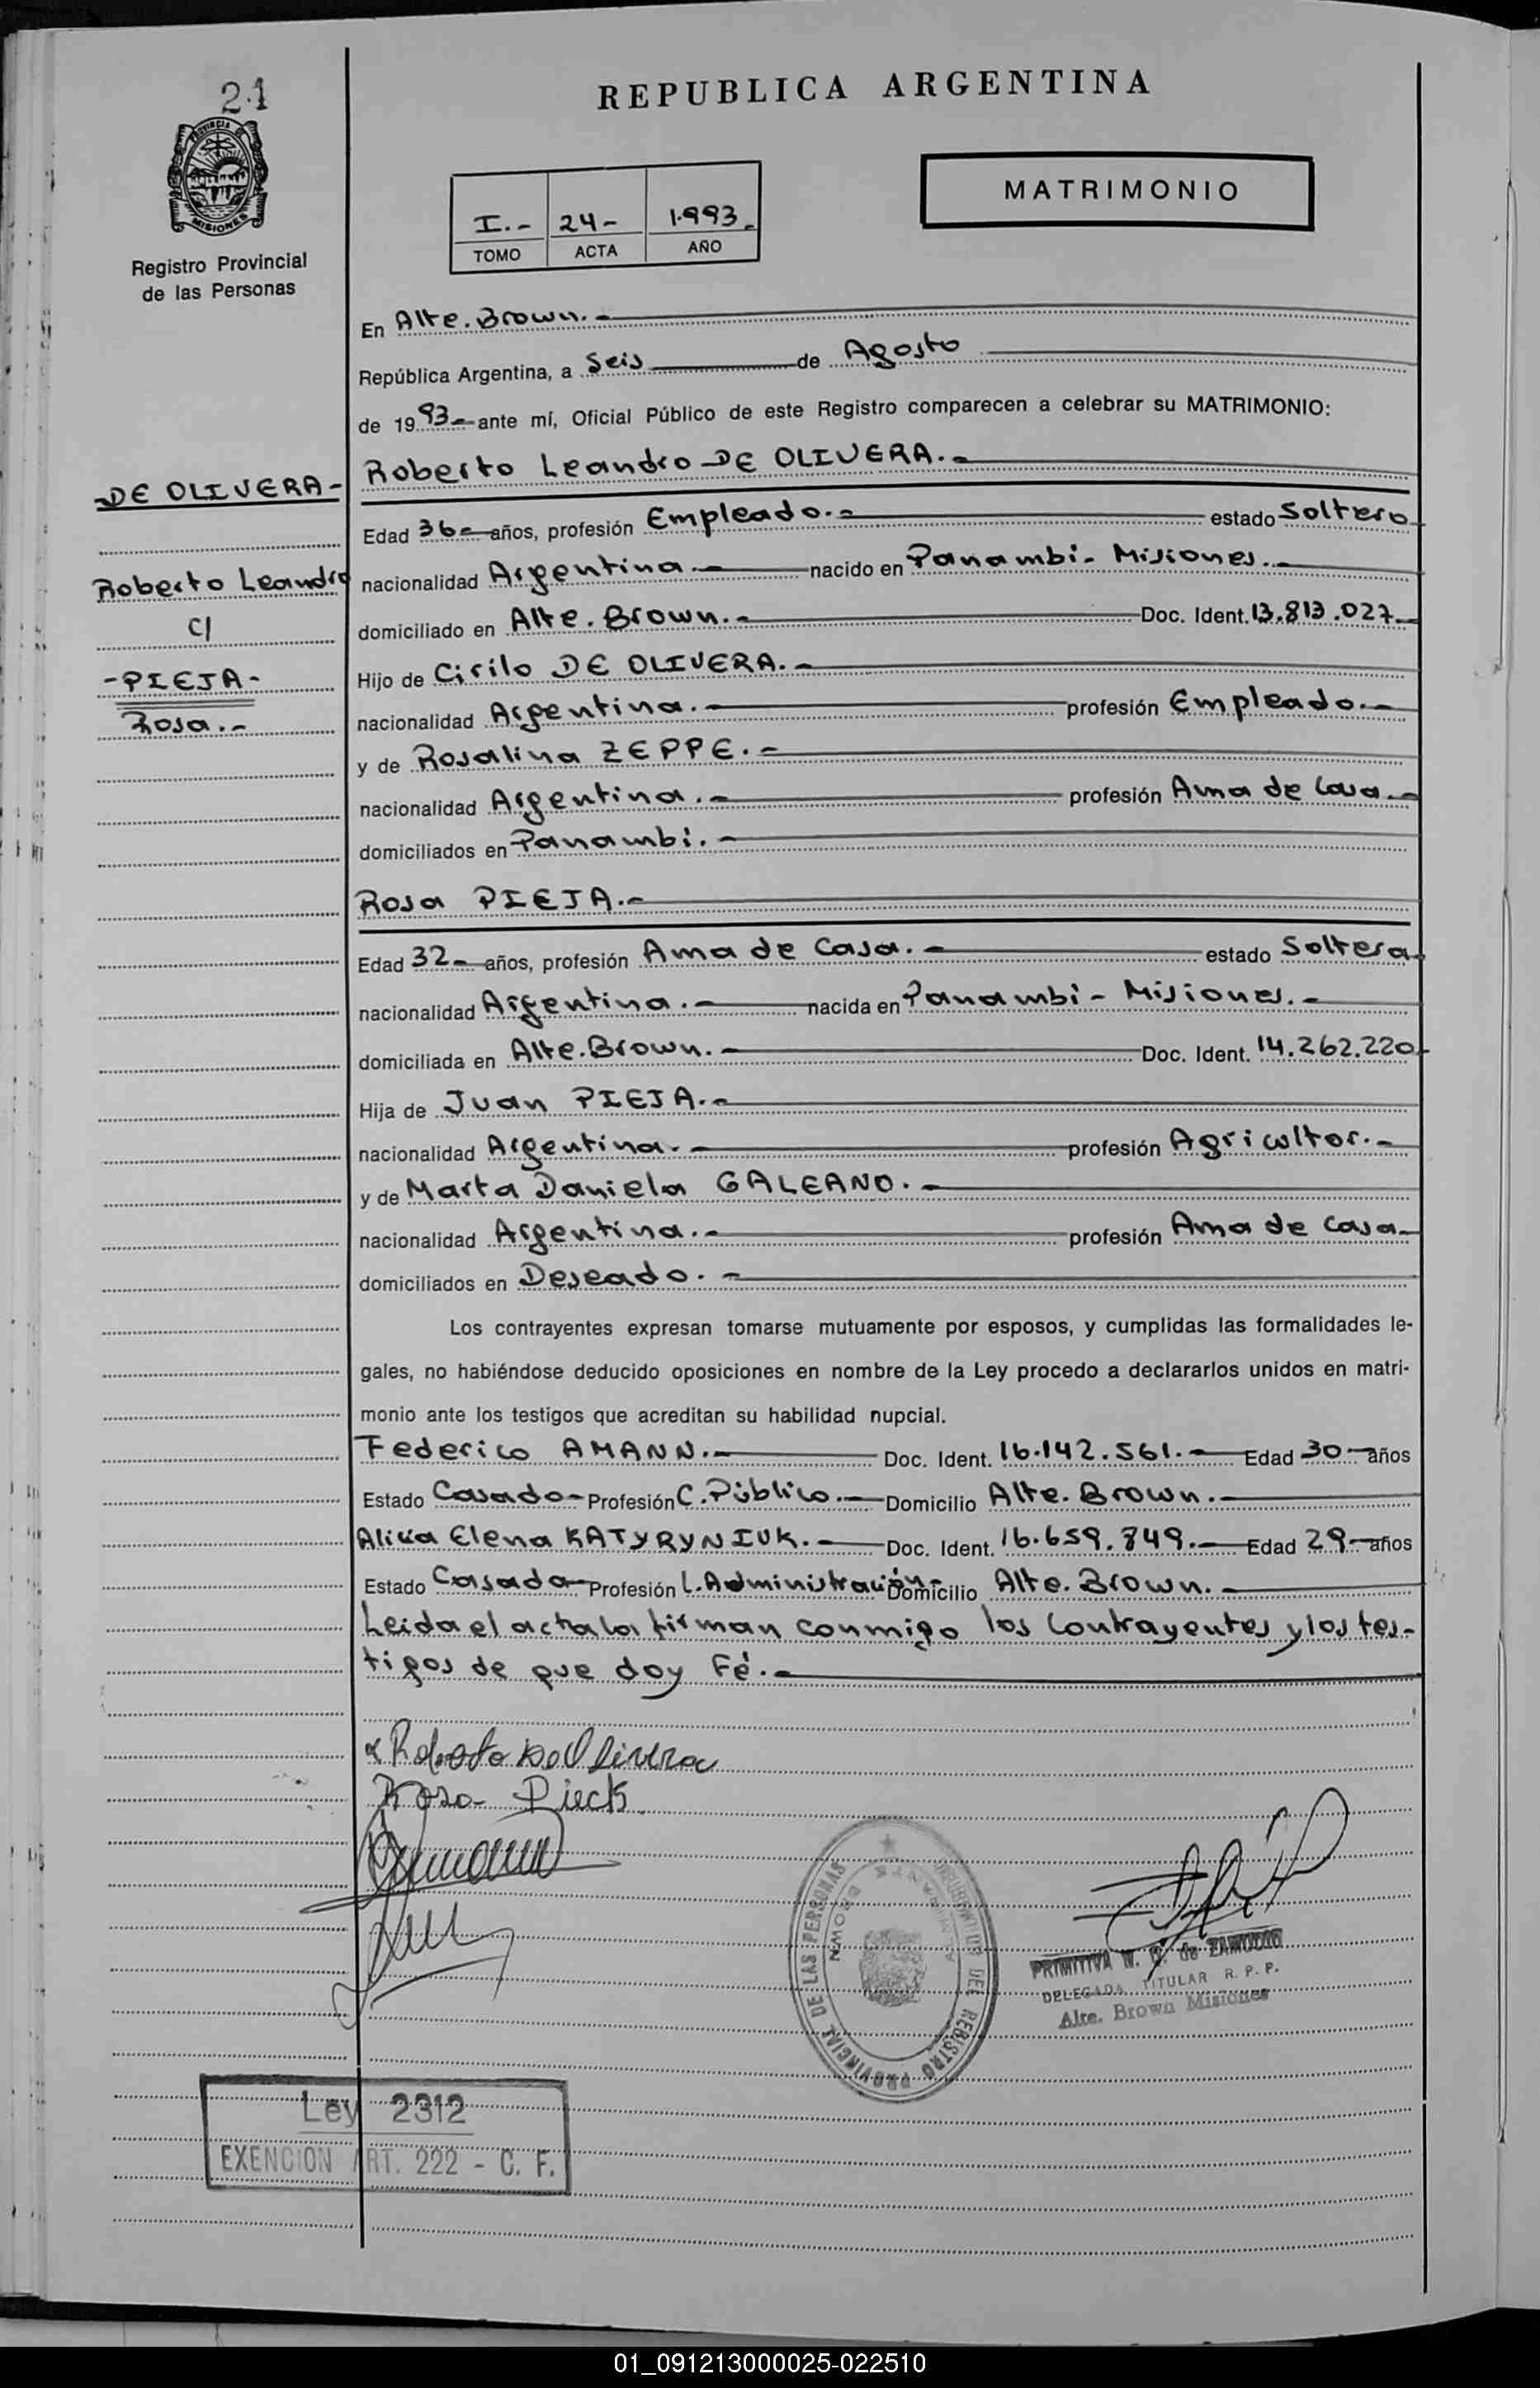 21
REPUBLICA ARGENTINA
PROVINCIA DE
MISIONES
Registro Provincial
de las Personas
I.- 24- 1.993.-
TOMO ACTA AÑO
MATRIMONIO
En Alte. Brown.-
República Argentina, a Seis de Agosto
de 1993- ante mí, Oficial Público de este Registro comparecen a celebrar su MATRIMONIO:
DE OLIVERA-
Roberto Leandro
C/
-PIEJA-
Rosa.-
Roberto Leandro DE OLIVERA.-
Edad 36- años, profesión Empleado.- estado Soltero
nacionalidad Argentina.- nacido en Panambi- Misiones.-
domiciliado en Alte. Brown.- Doc. Ident. 13.813.027-
Hijo de Cirilo DE OLIVERA.-
nacionalidad Argentina.- profesión Empleado.-
y de Rosalina ZEPPE.-
nacionalidad Argentina.- profesión Ama de Casa.-
domiciliados en Panambi.-
Rosa PIEJA.-
Edad 32- años, profesión Ama de Casa.- estado Soltera
nacionalidad Argentina.- nacida en Panambi- Misiones.-
domiciliada en Alte. Brown.- Doc. Ident. 14.262.220-
Hija de Juan PIEJA.-
nacionalidad Argentina.- profesión Agricultor.-
y de Marta Daniela GALEANO.-
nacionalidad Argentina.- profesión Ama de Casa-
domiciliados en Deseado.-
Los contrayentes expresan tomarse mutuamente por esposos, y cumplidas las formalidades le-
gales, no habiéndose deducido oposiciones en nombre de la Ley procedo a declararlos unidos en matri-
monio ante los testigos que acreditan su habilidad nupcial.
Federico AMANN.- Doc. Ident. 16.142.561.- Edad 30- años
Estado Casado- Profesión C. Público.- Domicilio Alte. Brown.-
Alicia Elena KATYRYNIUK.- Doc. Ident. 16.659.849.- Edad 29- años
Estado Casada- Profesión L. Administración- Domicilio Alte. Brown.-
Leida el acta la firman conmigo los Contrayentes y los tes-
tigos de que doy Fé.-
Roberto De Olivera
Rosa
DEL REGISTRO PROVINCIAL DE LAS PERSONAS
BROWN
PRIMITIVA de ZAMUDIO
DELEGADA TITULAR R. P. P.
Alte. Brown Misiones
Ley 2312
EXENCION ART. 222 - C. F.
01_091213000025-022510